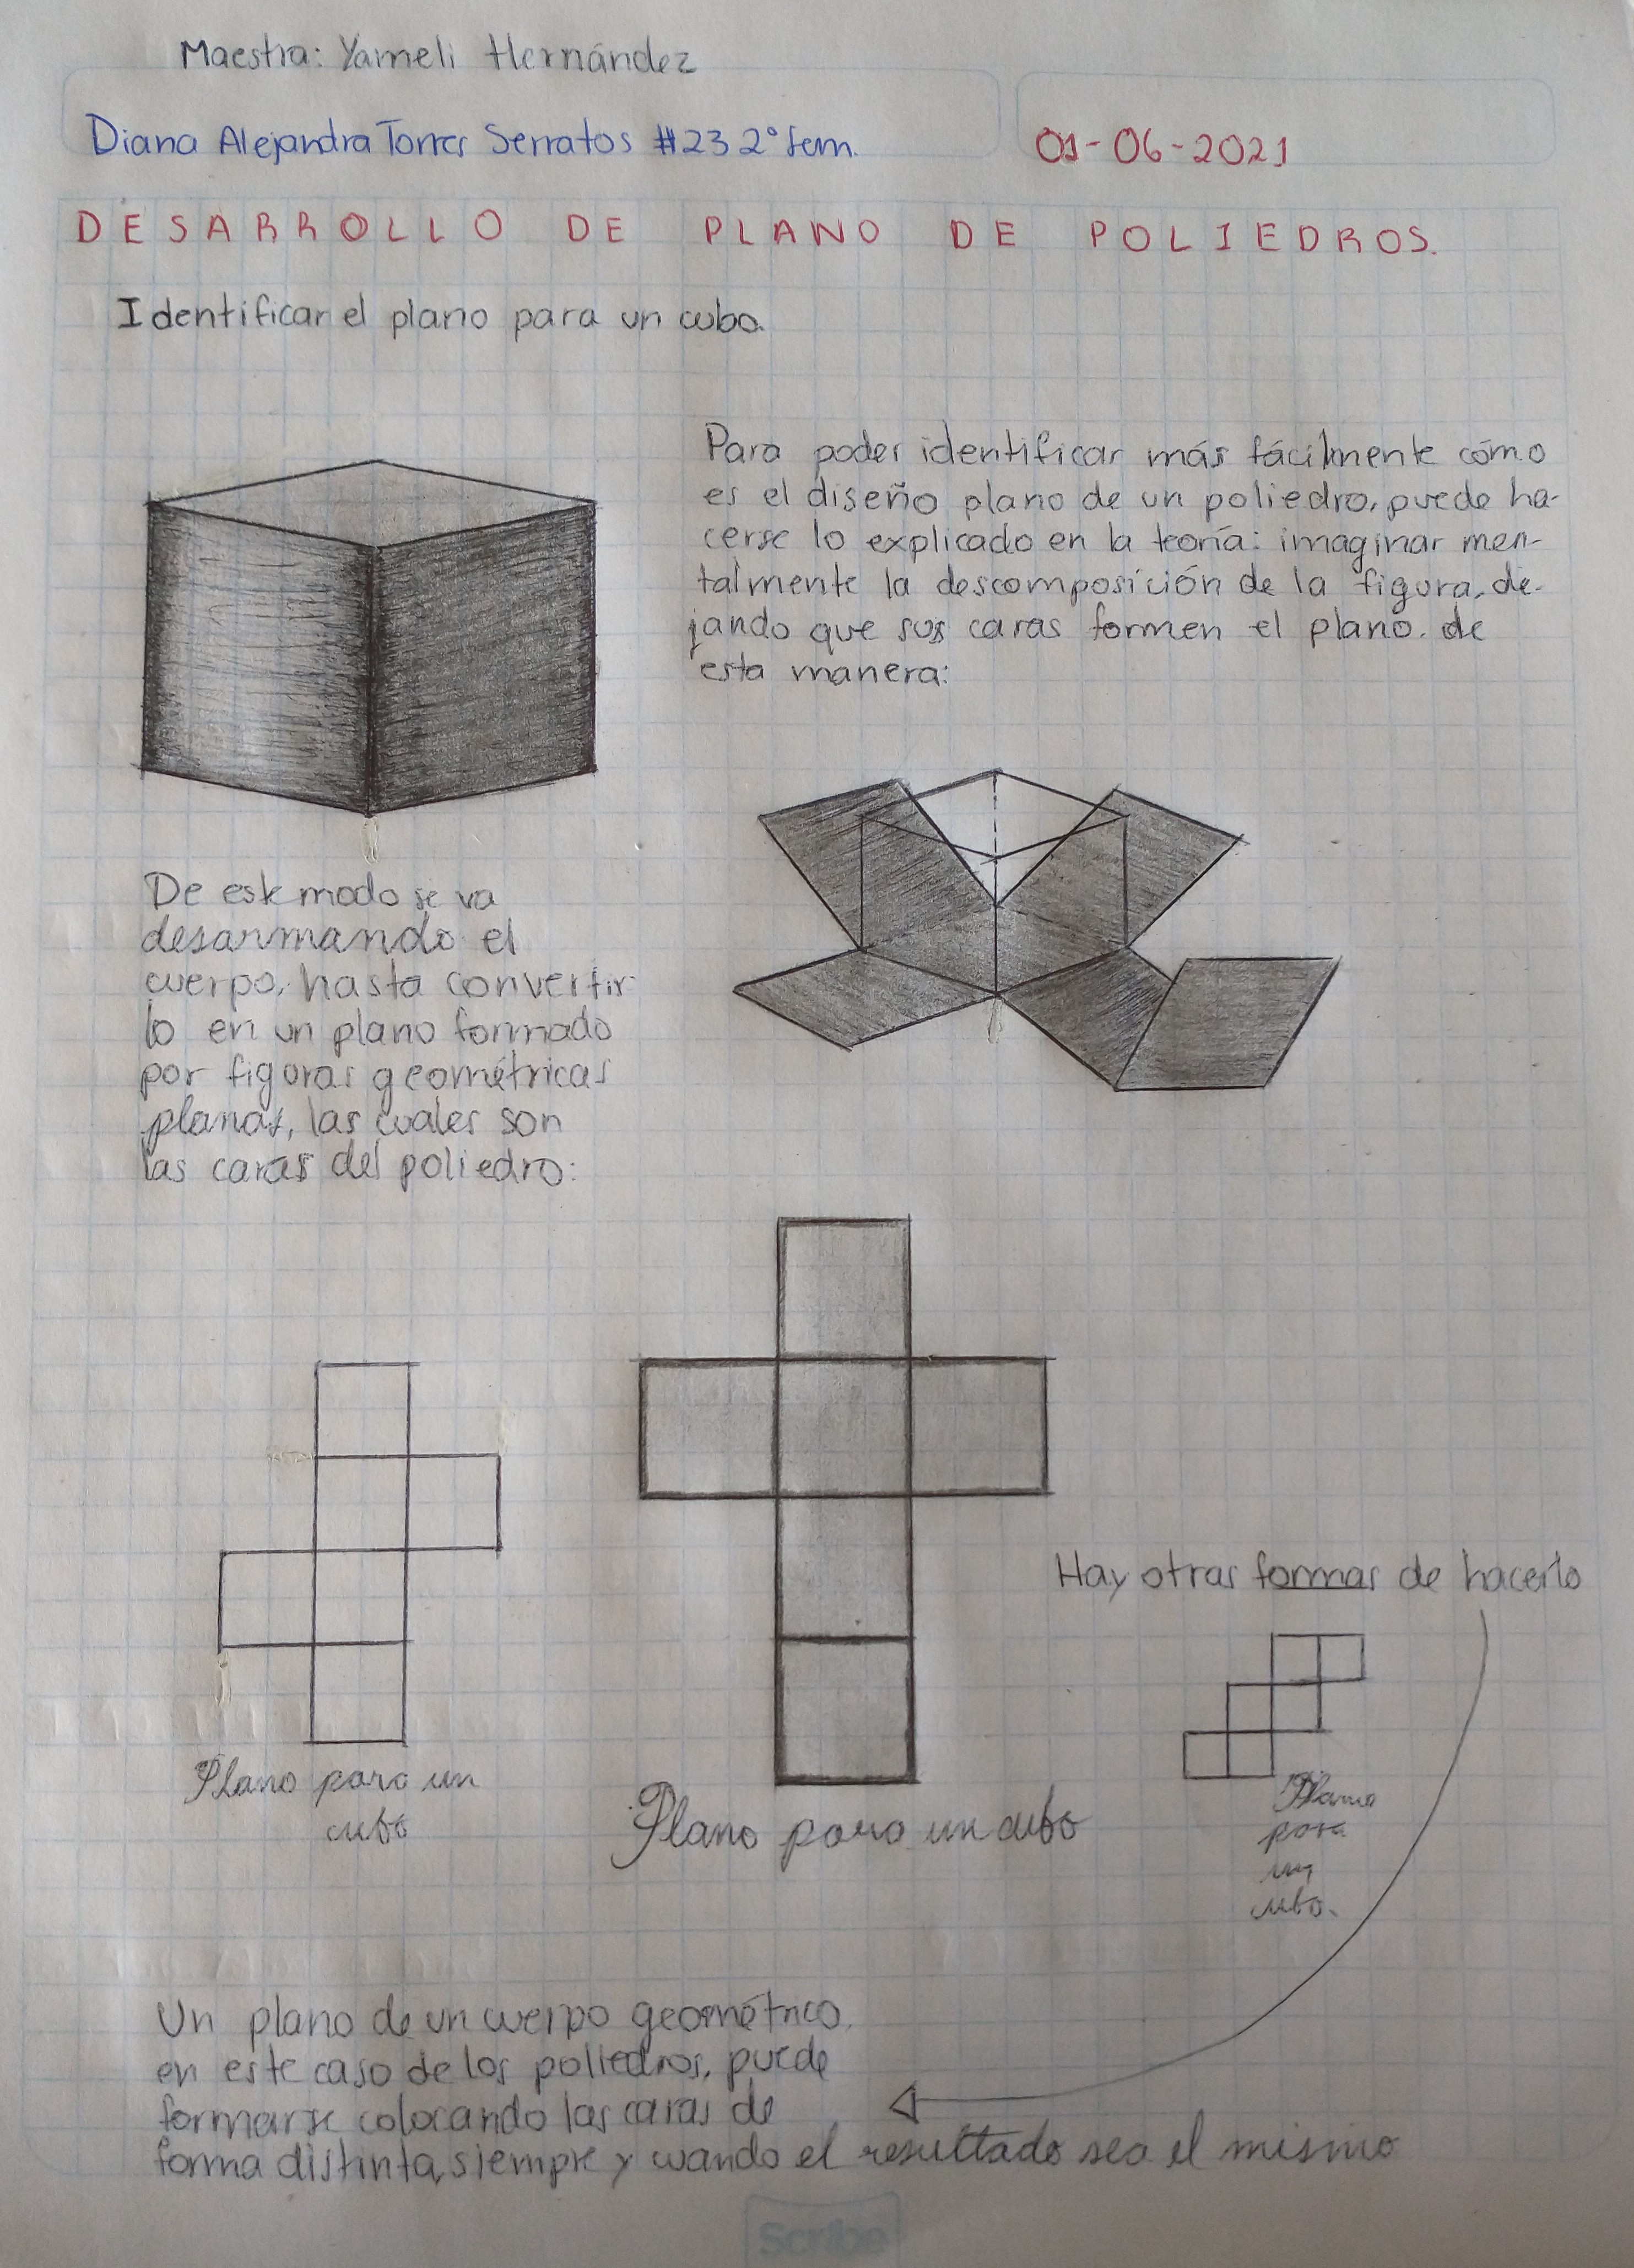 Maestra: Yameli Hernández
Diana Alejandra Torres Serratos #23 2° Sem.
01-06-2021
DESARROLLO DE PLANO DE POLIEDROS.
Identificar el plano para un cubo.
Para poder identificar más fácilmente cómo
es el diseño plano de un poliedro, puede ha-
cerse lo explicado en la teoría: imaginar men-
talmente la descomposición de la figura, de-
jando que sus caras formen el plano. de
esta manera:
De este modo se va
desarmando el
cuerpo, hasta convertir
lo en un plano formado
por figuras geométricas
planas, las cuales son
las caras del poliedro:
Plano para un
cubo
Plano para un cubo
Hay otras formas de hacerlo
Plano
para
un
cubo.
Un plano de un cuerpo geométrico,
en este caso de los poliedros, puede
formarse colocando las caras de
forma distinta, siempre y cuando el resultado sea el mismo
Scribe